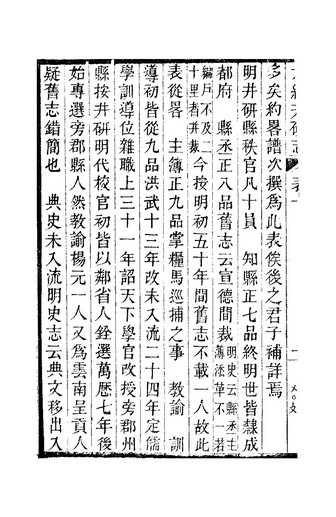 多矣約畧譜次撰爲此表俟後之君子補詳焉
明井研縣秩官凡十員　知縣正七品終明世皆隸成
都府　縣丞正八品舊志云宣德間裁明史云縣丞主簿添革不一若
編戶不及二十里者并裁今按明初五十年間舊志不載一人故此
表從畧　主簿正九品掌糧馬巡捕之事　教諭　訓
導初皆從九品洪武十三年改未入流二十四年定儒
學訓導位雜職上三十一年詔天下學官改授旁郡州
縣按井研明代校官初皆以鄰省人銓選萬歷七年後
始專選旁郡縣人然教諭楊元一人又爲雲南呈貢人
疑舊志錯簡也　典史未入流明史志云典文移出入